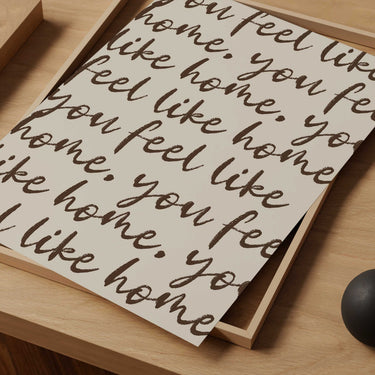 you feel like
home. you feel
like home. you
feel like home
you feel like
home. you fee
like home. you
feel like home